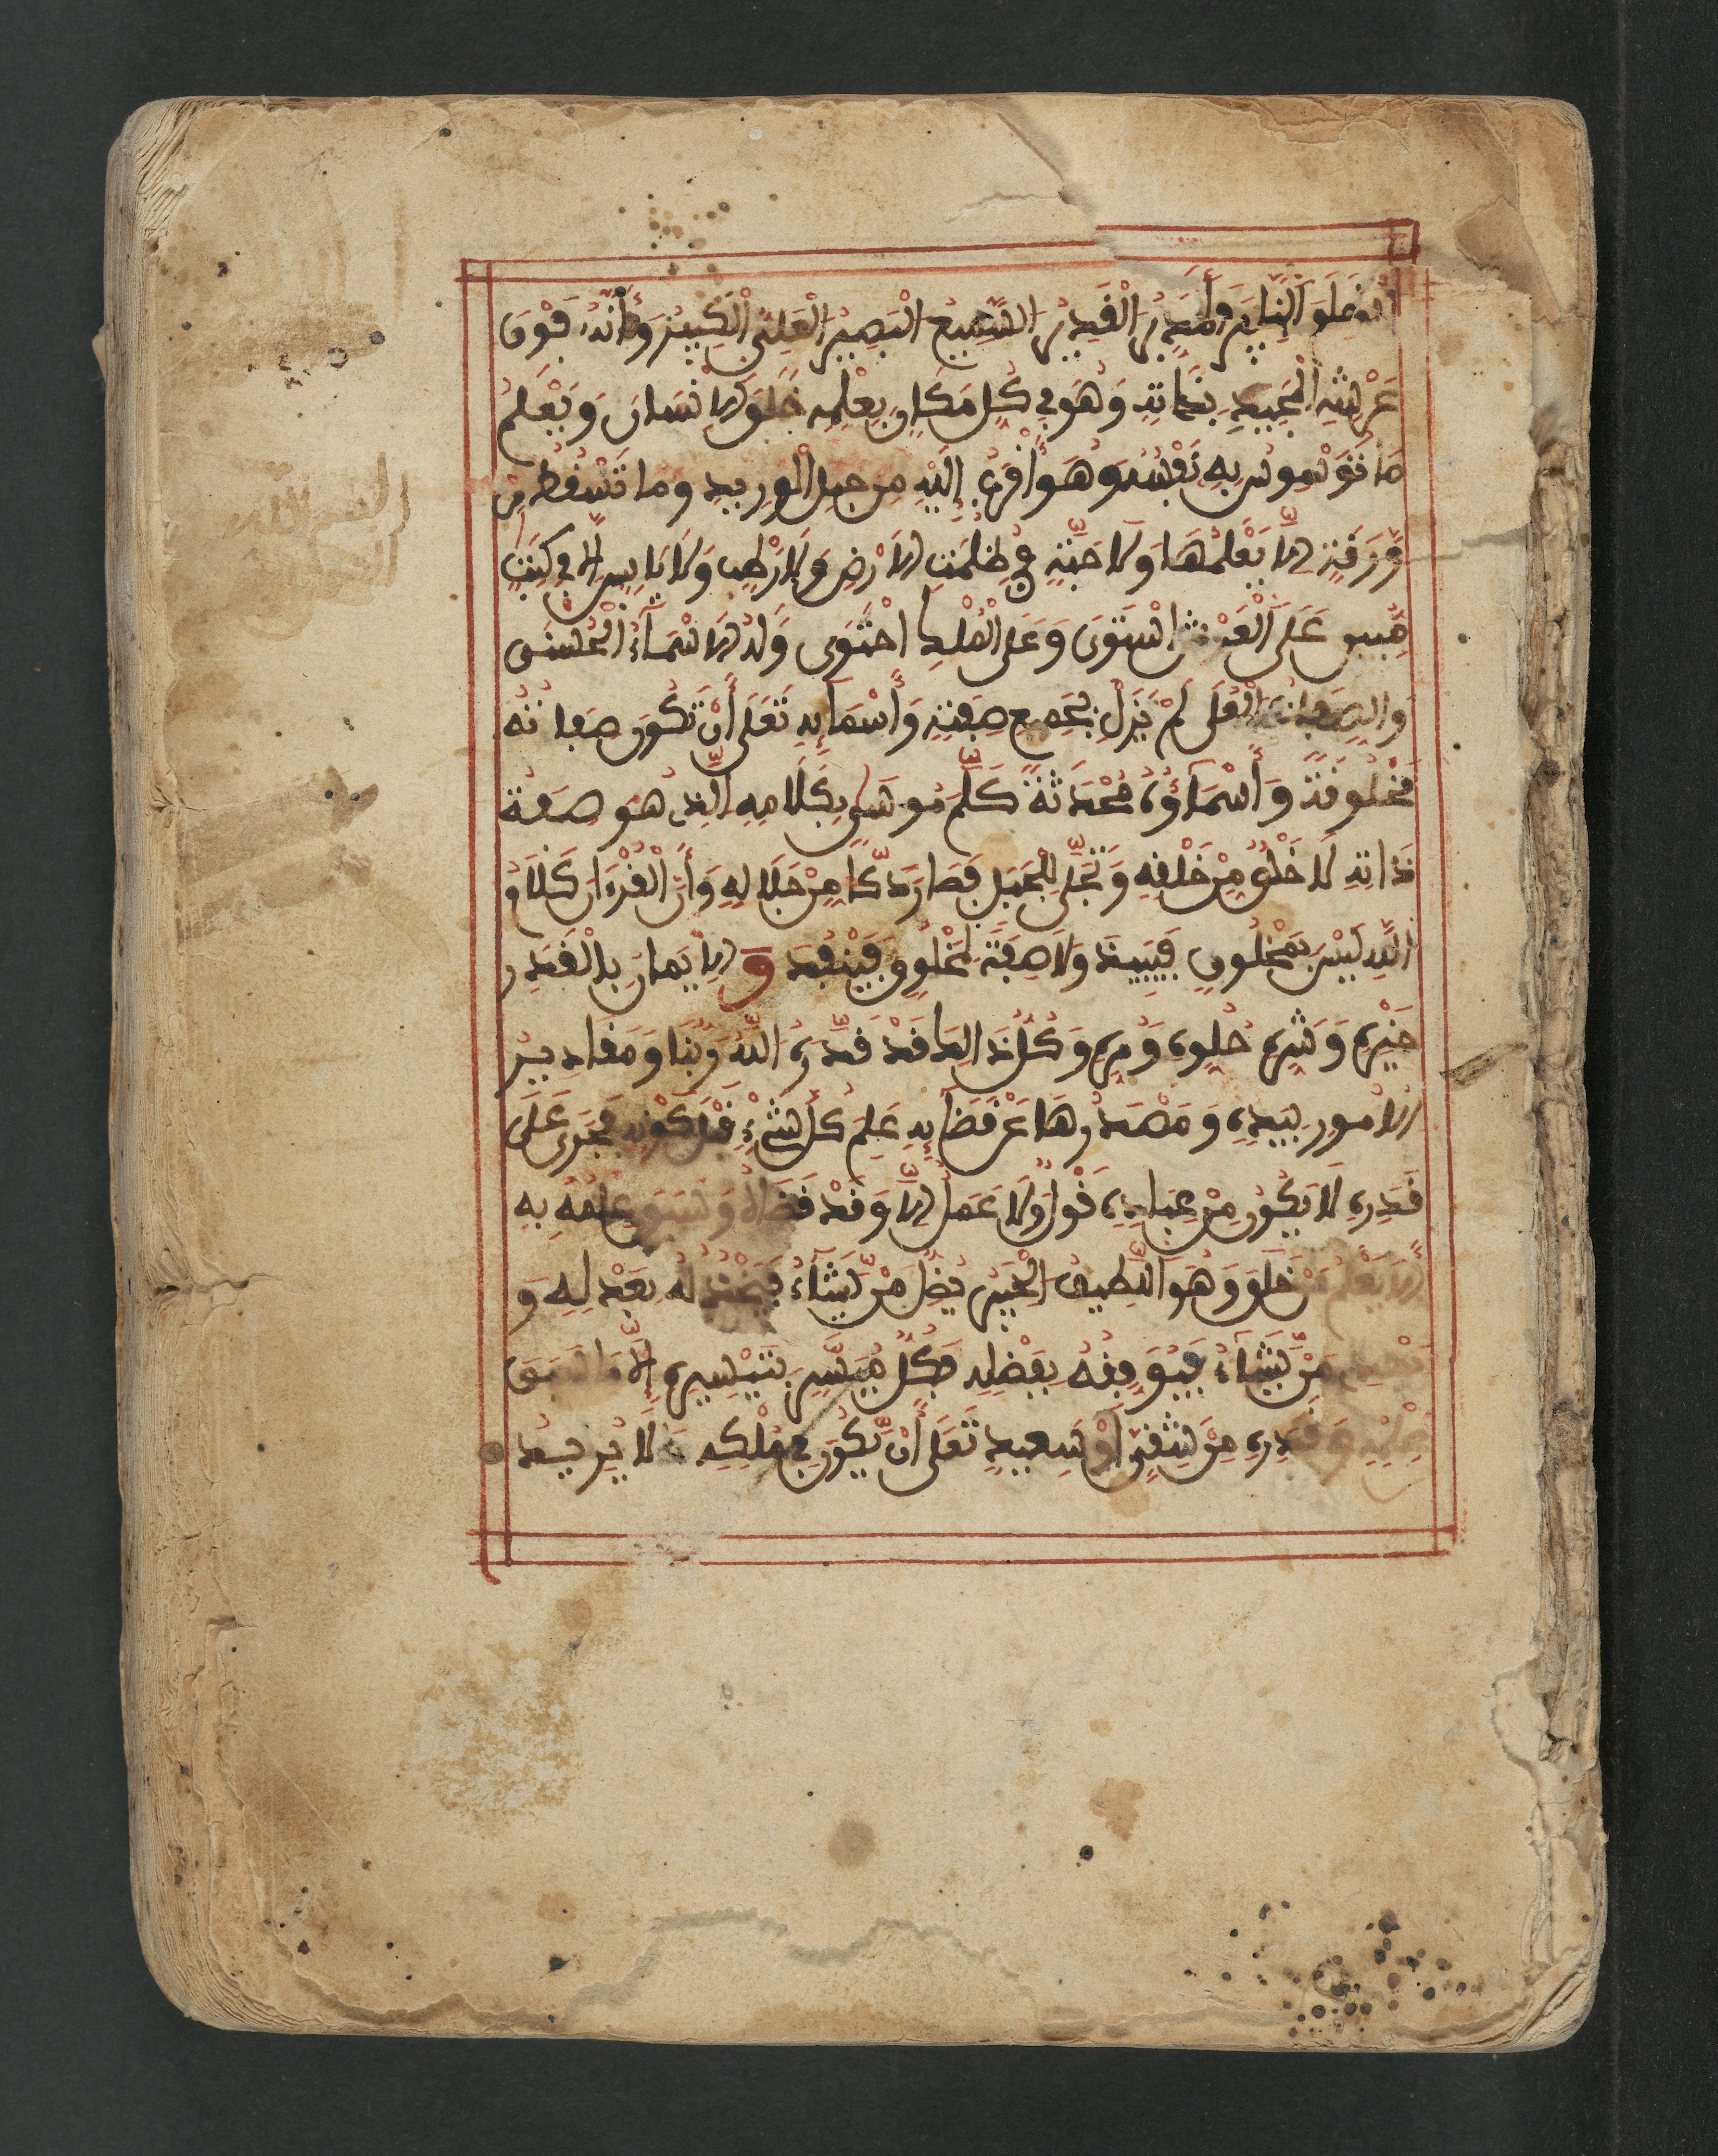 الخبير المدبر القدير السميع البصير العلي الكبير وأنه فوق
عرشه المجيد بذاته وهو في كل مكان بعلمه خلق الإنسان ويعلم
ما توسوس به نفسه وهو أقرب إليه من حبل الوريد وما تسقط من
ورقة إلا يعلمها ولا حبة في ظلمت الأرض ولا رطب ولا يابس إلا في كتب
مبين على العرش استوى وعلى الملك احتوى وله الأسماء الحسنى
والصفات العلى لم يزل بجميع صفته وأسمائه تعلى أن تكون صفاته
مخلوقة وأسماؤه محدثة كلم موسى بكلامه الذي هو صفة
ذاته لا خلق من خلقه وتجلى للجبل فصار دكا من جلاله وأن القرءان كلام
الله ليس بمخلوق فيبيد ولا صفة لمخلوق فينفد و الإيمان بالقدر
خيره وشره حلوه ومره وكل ذلك قد قدره الله ربنا ومقادير
الأمور بيده ومصدرها عن قضائه علم كل شيء قبل كونه فجرى على
قدره لا يكون من عباده قول ولا عمل إلا وقد قضاه وسبق علمه به
ألا يعلم من خلق وهو اللطيف الخبير يضل من يشاء فيخذله بعدله و
يهدي من يشاء فيوفقه بفضله فكل ميسر بتيسيره إلى ما سبق
علمه وقدره من شقي أو سعيد تعلى أن يكون في ملكه ما لا يريد